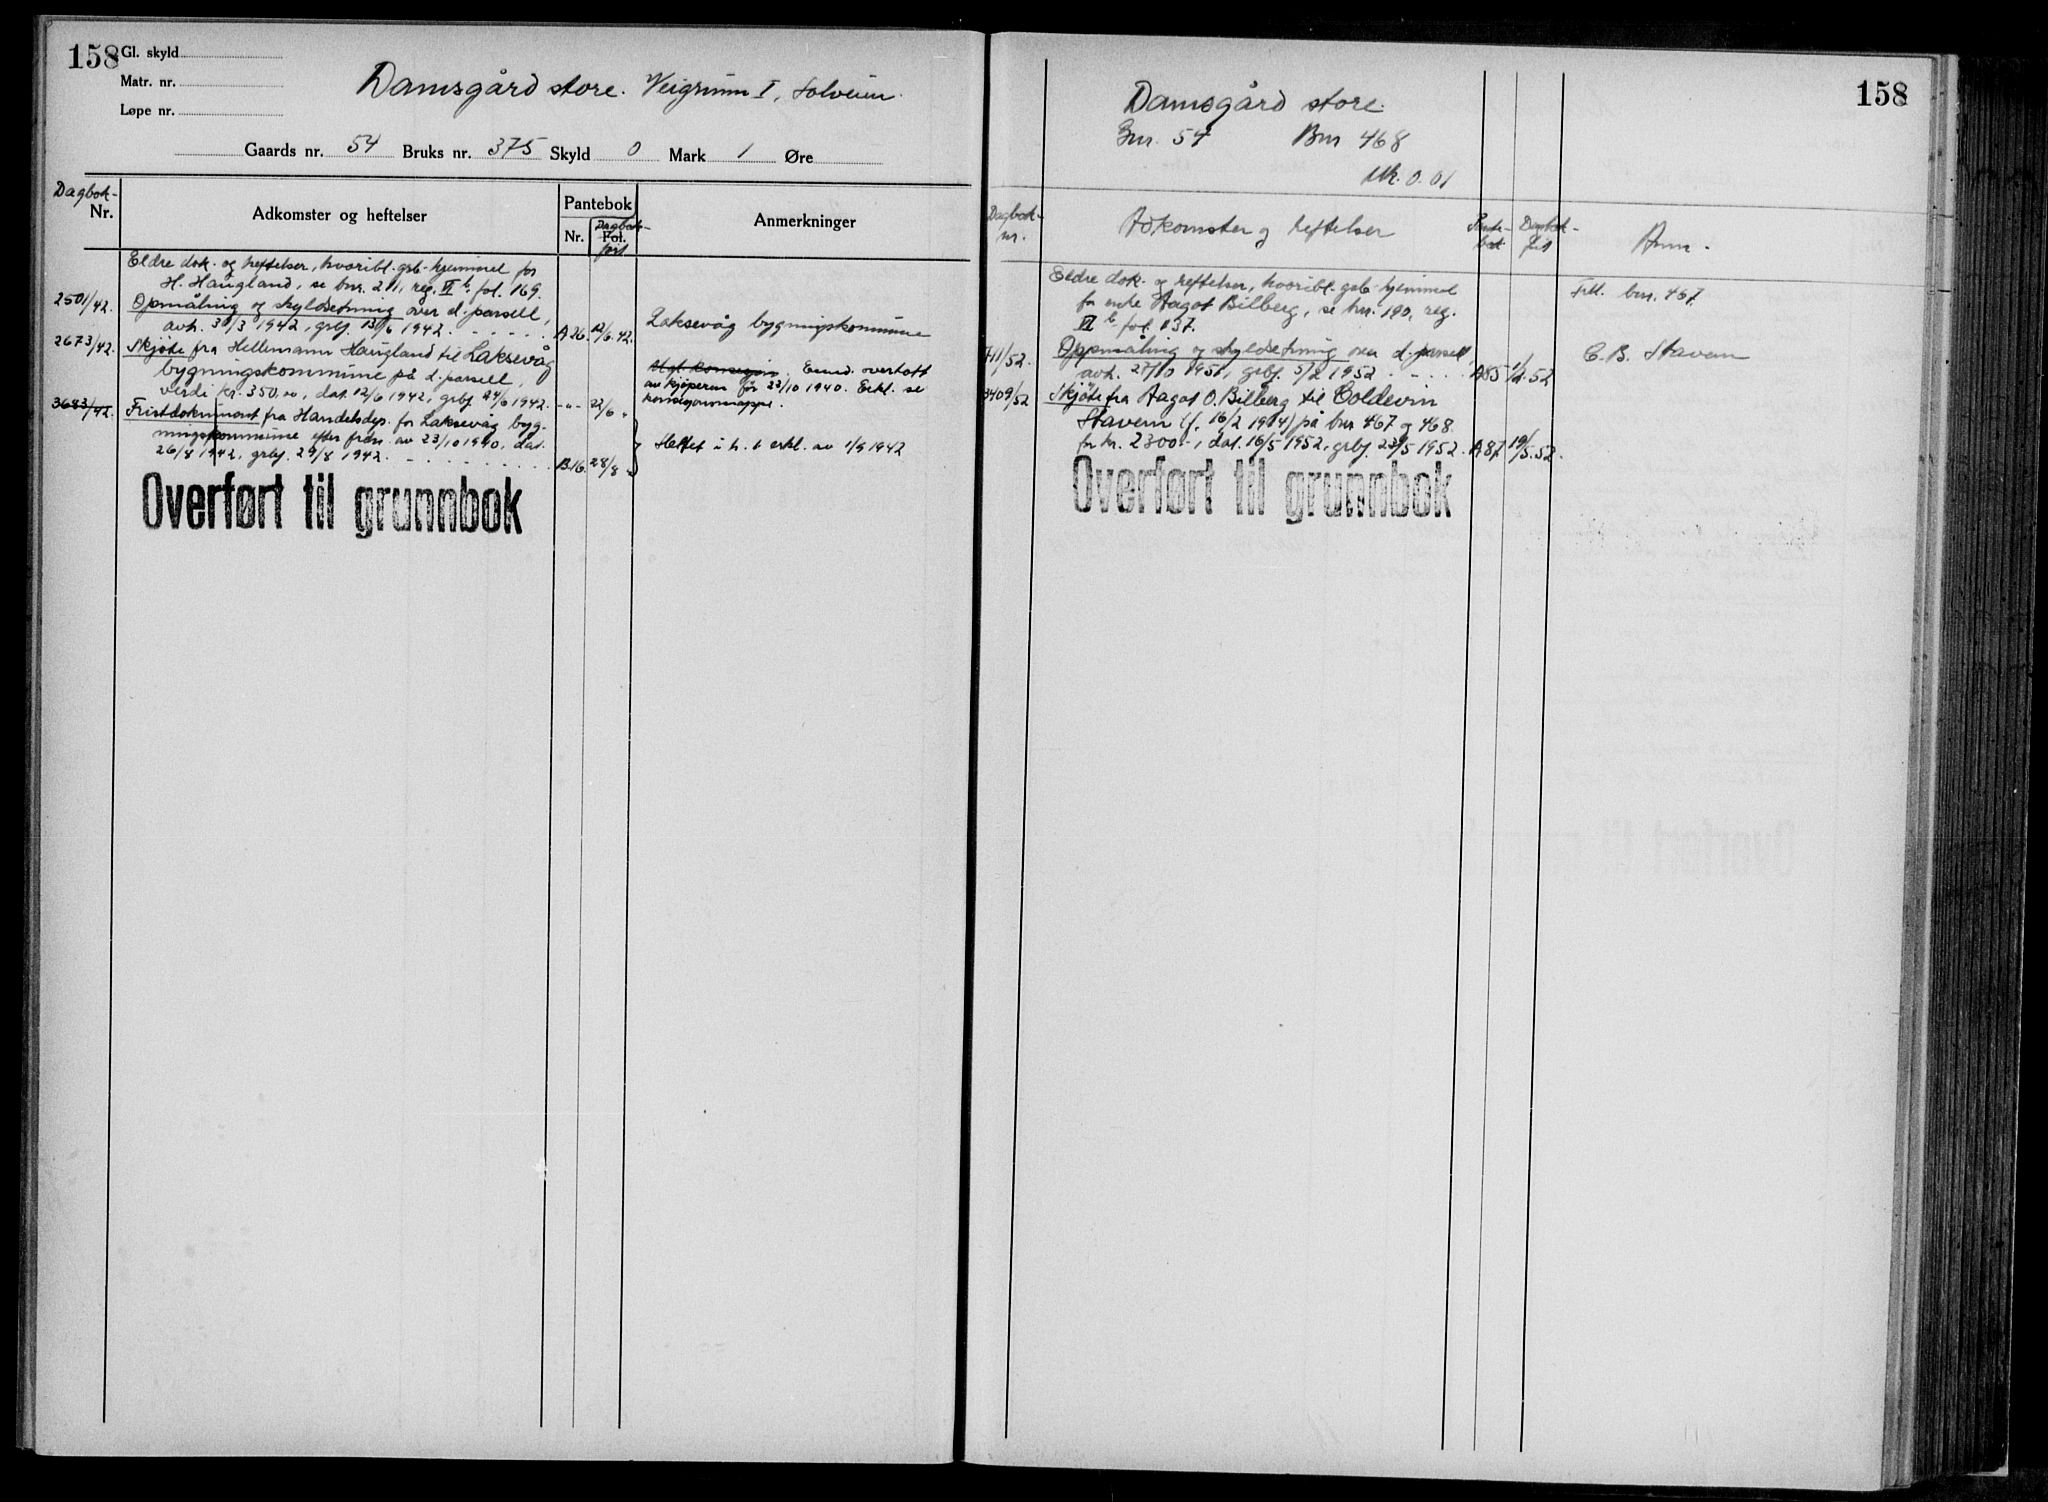 158
Gl. skyld
Matr. nr.
Løpe nr.
Damsgård store. Veigrunn I, Solveien.
Gaards nr. 54 Bruks nr. 375 Skyld 0 Mark 1 Øre
Dagbok-
Nr.
Adkomster og heftelser
Pantebok
Nr.
Fol.
Dagbok-
ført
Anmerkninger
Eldre dok. og heftelser, hvoribl. grb-hjemmel for
H. Haugland, se bnr. 211, reg. II b. fol. 169.
2501/42. Opmåling og skyldsetning over d. parsell,
avh. 30/3 1942, grbf. 13/6 1942. A 26. 12/6.42. Laksevåg bygningskommune
2673/42. Skjøte fra Hellemann Haugland til Laksevåg
bygningskommune på d. parsell,
verdi kr. 350,00, dat. 12/6 1942, grbf. 24/6 1942. -"- 22/6 "
Ugl. konsesjon. Eiend. overtatt
av kjøperen før 23/10 1940. Erkl. se
konsesjonsmappe.
3683/42. Fristdokument fra Handelsdep. for Laksevåg byg-
ningskommune efter frdn. av 23/10 1940, dat.
26/8 1942, grbf. 29/8 1942. B.16. 28/8 "
Slettet i h. t. erkl. av 1/9 1942
Overført til grunnbok
158
Damsgård store.
Gnr. 54 Bnr 468
Mk. 0.01
Dagbok-
nr.
Adkomster og heftelser
Pante-
bok
Dagbok-
ført
Anm.
Eldre dok. og heftelser, hvoribl. grb-hjemmel
for enke Aagot Bilberg, se bnr. 190, reg.
II b fol. 137.
Till. bnr. 467.
711/52. Oppmåling og skyldsetning over d. parsell,
avh. 27/10 1951, grbf. 5/2 1952. A85 1/2.52
C. B. Stavem
3409/52 Skjøte fra Aagot O. Bilberg til Coldevin
Stavem (f. 16/2 1914) på bnr 467 og 468
for kr. 2300.-, dat. 16/5 1952, grbf. 23/5 1952. A87 19/5.52.
Overført til grunnbok